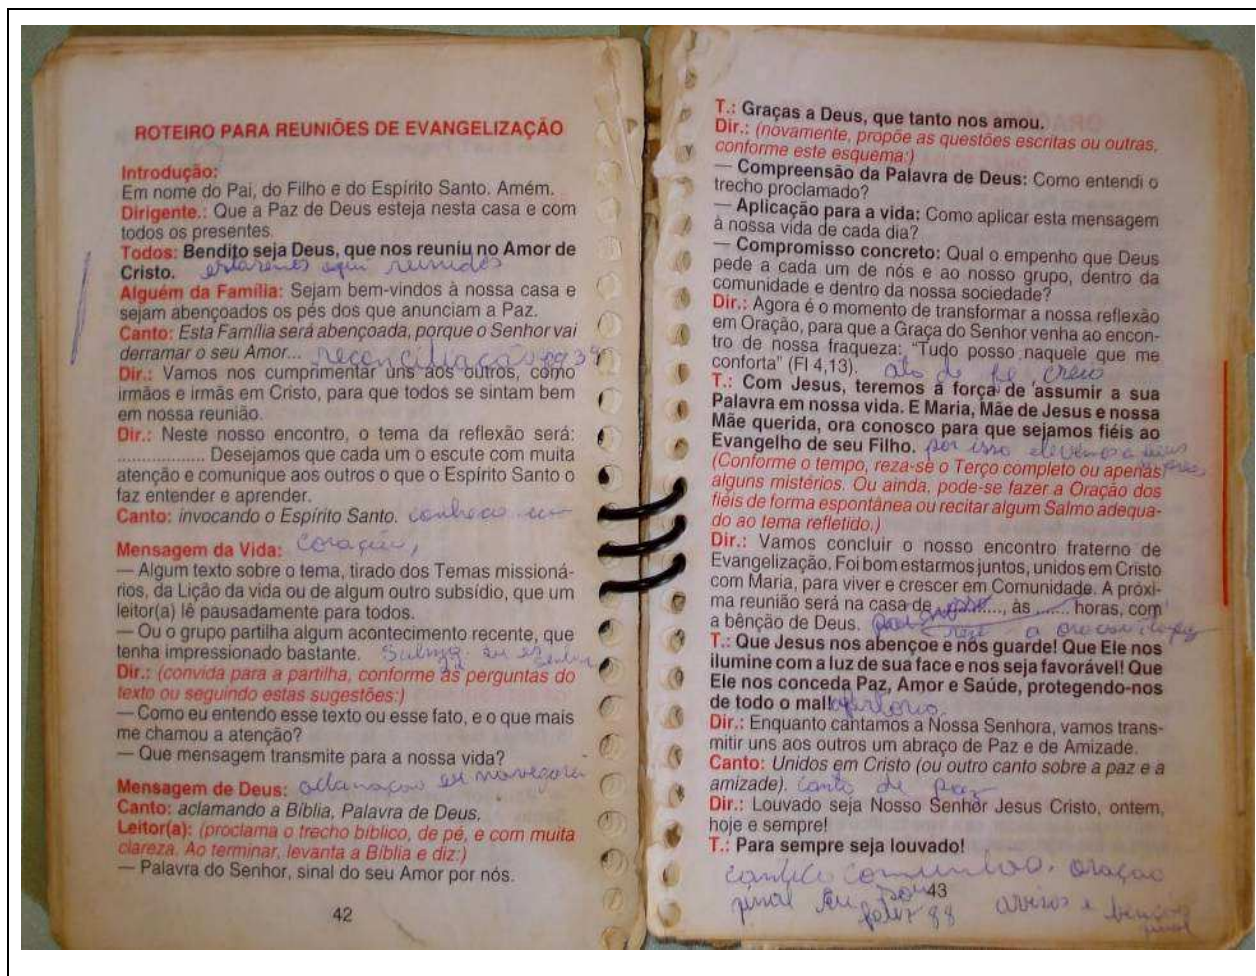 ROTEIRO PARA REUNIÕES DE EVANGELIZAÇÃO
Introdução:
Em nome do Pai, do Filho e do Espírito Santo. Amém.
Dirigente.: Que a Paz de Deus esteja nesta casa e com
todos os presentes.
Todos: Bendito seja Deus, que nos reuniu no Amor de
Cristo. estaremos aqui reunidos
Alguém da Família: Sejam bem-vindos à nossa casa e
sejam abençoados os pés dos que anunciam a Paz.
Canto: Esta Família será abençoada, porque o Senhor vai
derramar o seu Amor... reconciliação
Dir.: Vamos nos cumprimentar uns aos outros, como
irmãos e irmãs em Cristo, para que todos se sintam bem
em nossa reunião.
Dir.: Neste nosso encontro, o tema da reflexão será:
................ Desejamos que cada um o escute com muita
atenção e comunique aos outros o que o Espírito Santo o
faz entender e aprender.
Canto: invocando o Espírito Santo.
Mensagem da Vida: coração,
— Algum texto sobre o tema, tirado dos Temas missioná-
rios, da Lição da vida ou de algum outro subsídio, que um
leitor(a) lê pausadamente para todos.
— Ou o grupo partilha algum acontecimento recente, que
tenha impressionado bastante.
Dir.: (convida para a partilha, conforme as perguntas do
texto ou seguindo estas sugestões:)
— Como eu entendo esse texto ou esse fato, e o que mais
me chamou a atenção?
— Que mensagem transmite para a nossa vida?
Mensagem de Deus:
Canto: aclamando a Bíblia, Palavra de Deus.
Leitor(a): (proclama o trecho bíblico, de pé, e com muita
clareza. Ao terminar, levanta a Bíblia e diz:)
— Palavra do Senhor, sinal do seu Amor por nós.
42
T.: Graças a Deus, que tanto nos amou.
Dir.: (novamente, propõe as questões escritas ou outras,
conforme este esquema:)
— Compreensão da Palavra de Deus: Como entendi o
trecho proclamado?
— Aplicação para a vida: Como aplicar esta mensagem
à nossa vida de cada dia?
— Compromisso concreto: Qual o empenho que Deus
pede a cada um de nós e ao nosso grupo, dentro da
comunidade e dentro da nossa sociedade?
Dir.: Agora é o momento de transformar a nossa reflexão
em Oração, para que a Graça do Senhor venha ao encon-
tro de nossa fraqueza: "Tudo posso naquele que me
conforta" (Fl 4,13). ato de fé creio
T.: Com Jesus, teremos a força de assumir a sua
Palavra em nossa vida. E Maria, Mãe de Jesus e nossa
Mãe querida, ora conosco para que sejamos fiéis ao
Evangelho de seu Filho. por isso elevemos a
(Conforme o tempo, reza-se o Terço completo ou apenas
alguns mistérios. Ou ainda, pode-se fazer a Oração dos
fiéis de forma espontânea ou recitar algum Salmo adequa-
do ao tema refletido.)
Dir.: Vamos concluir o nosso encontro fraterno de
Evangelização. Foi bom estarmos juntos, unidos em Cristo
com Maria, para viver e crescer em Comunidade. A próxi-
ma reunião será na casa de ........., às ....... horas, com
a bênção de Deus.
T.: Que Jesus nos abençoe e nos guarde! Que Ele nos
ilumine com a luz de sua face e nos seja favorável! Que
Ele nos conceda Paz, Amor e Saúde, protegendo-nos
de todo o mal! ofertório.
Dir.: Enquanto cantamos a Nossa Senhora, vamos trans-
mitir uns aos outros um abraço de Paz e de Amizade.
Canto: Unidos em Cristo (ou outro canto sobre a paz e a
amizade). canto de paz
Dir.: Louvado seja Nosso Senhor Jesus Cristo, ontem,
hoje e sempre!
T.: Para sempre seja louvado!
oração
43
avisos e